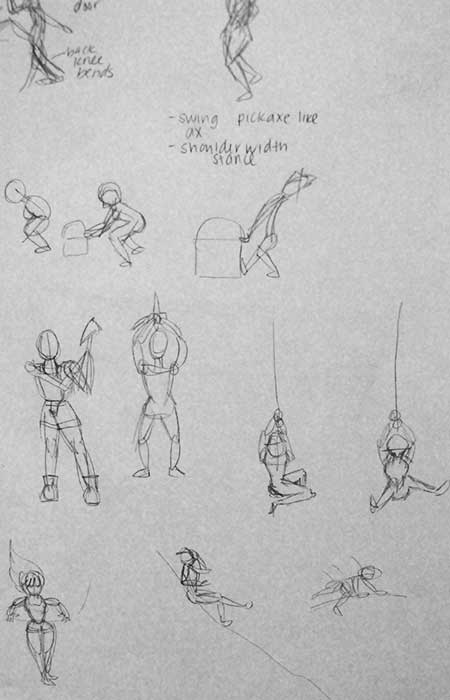 door
back
knee
bends
- swing pickaxe like
ax
- shoulder width
stance